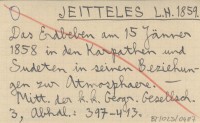 JEITTELES L.H. 1859.
Das Erdbeben am 15 Jänner
1858 in den Karpathen und
Sudeten in seinen Beziehun-
gen zur Atmosphaere. —
Mitt. der k.k. Geogr. Gesellsch.
3, Abhdl.: 397-413.